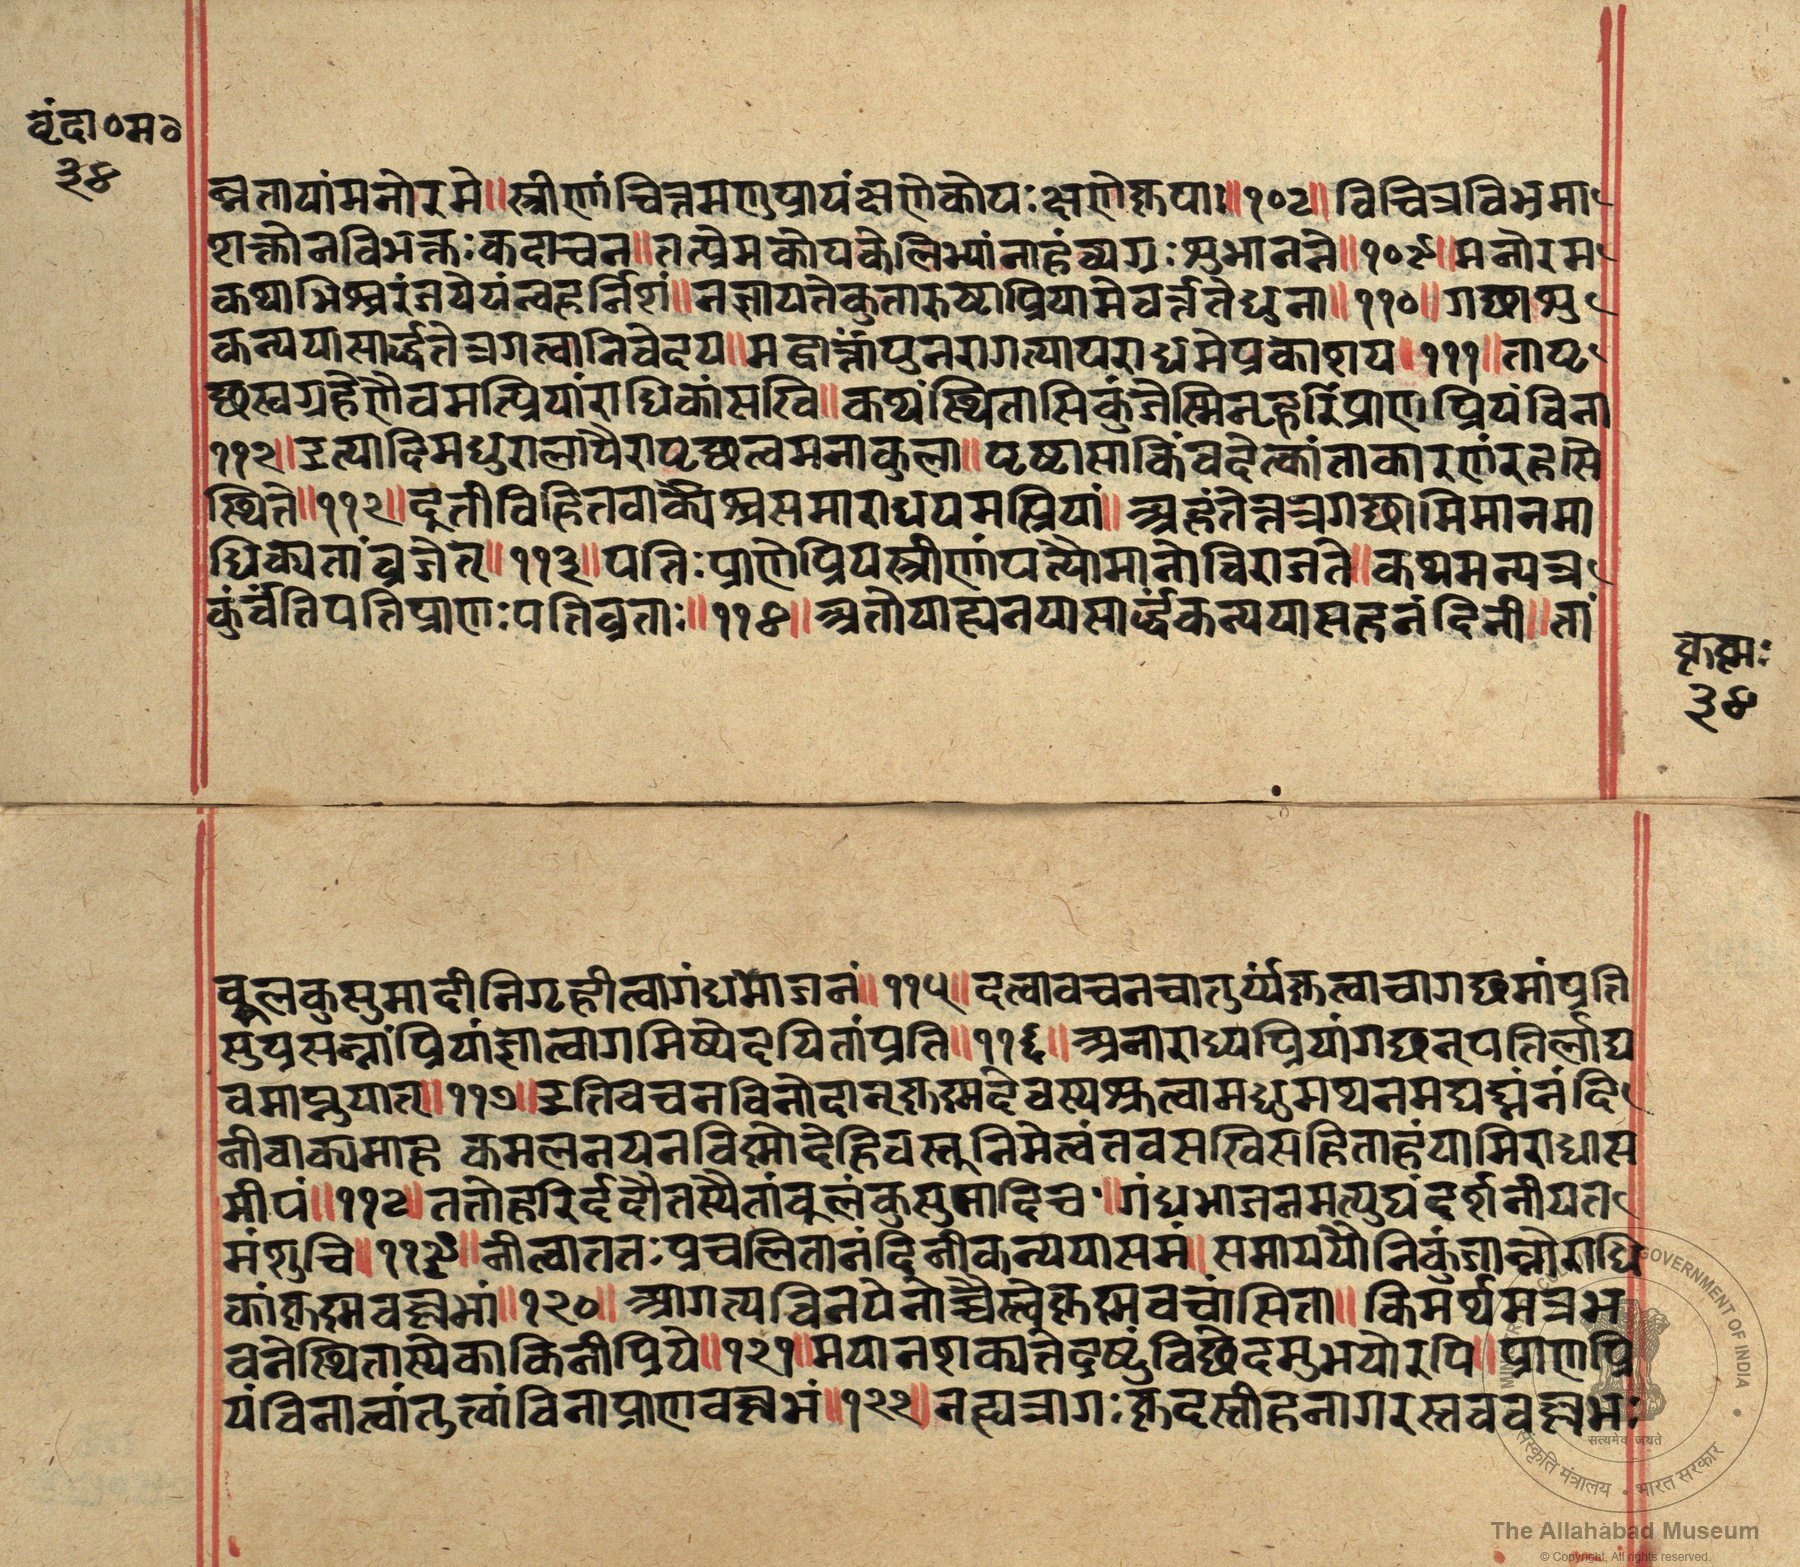 वृंदा०म०
३४
न्नतायांमनोरमे॥स्त्रीणांचित्तमणुप्रायंक्षणेकोपःक्षणेकृपाः॥१०८॥विचित्रविभ्रमा
शक्तोनविभक्तःकदाचन॥तत्प्रेमकोपकेलिभ्यांनाहंव्यग्रःशुभानने॥१०९॥मनोरम
कथाभिश्चरंजयेयंत्वहर्निशं॥नज्ञायतेकुतारुष्टाप्रियामेवर्त्ततेधुना॥११०॥गछाशु
कन्ययासार्द्धंतेत्रगत्वानिवेदय॥मद्वार्त्तांपुनरागत्यापराधमेप्रकाशय॥१११॥तापृ
छस्वग्रहेणैवमत्प्रियांराधिकांसखि॥कथंस्थितासिकुंजेस्मिन्हरिंप्राणप्रियंविना
११२॥इत्यादिमधुरालापैरापृछत्वमनाकुला॥पृष्टासाकिंवदेत्कांताकारणंरहसि
स्थिते॥११२॥दूतीविहितवाक्यैश्चसमाराधयमप्रियां॥अहंतेत्तत्रगछामिमानमा
धिक्यतांव्रजेत्॥११३॥पतिःप्राणेप्रियस्त्रीणांपत्यौमानोविराजते॥कथमन्यत्र
कुंर्वंतिपतिप्राणःपतिव्रताः॥११४॥अतोयाह्यनयासार्द्धंकन्ययासहनंदिनी॥तां
कृष्मः
३४
वूलकुसुमादीनिगृहीत्वागंधभाजनं॥११५॥दत्वावचनचातुर्य्यंकृत्वाचागछमांप्रति
सुप्रसन्नांप्रियांज्ञात्वागमिष्येदयितांप्रति॥११६॥अनाराध्यप्रियांगछन्पतिर्लाघ
वमाप्नुयात्॥११७॥इतिवचनविनोदान्कृष्मदेवस्यश्रुत्वामधुमथनमघघ्नंनंदि
नीवाक्यमाह कमलनयनविष्मोदेहिवस्तुनिमेत्वंतवसखिसहिताहंयामिराधास
मीपं॥११८॥ततोहरिर्ददौतस्यैतांवूलंकुसुमादिच॥गंधभाजनमत्युग्रंदर्शनीयत
मंशुचि॥११९॥नीत्वाततःप्रचलितानंदिनीकन्ययासमं॥समाययौनिकुंजान्तौराधि
कांकृष्मवल्लभां॥१२०॥आगत्यविनयेनोच्चैस्त्वेकृष्मवचांसिता॥किमर्थमत्रभ
वनेस्थितास्येकाकिनीप्रिये॥१२१॥मयानशक्यतेद्रष्टुंविछेदमुभयोरपि॥प्राणप्रि
यंविनात्वांतुत्वांविनाप्राणवल्लभं॥१२२॥नह्यत्रागःकृदस्तीहनागरस्तववल्लभः
MINISTRY OF CULTURE GOVERNMENT OF INDIA
सत्यमेव जयते
संस्कृति मंत्रालय • भारत सरकार
The Allahabad Museum
© Copyright, All rights reserved.